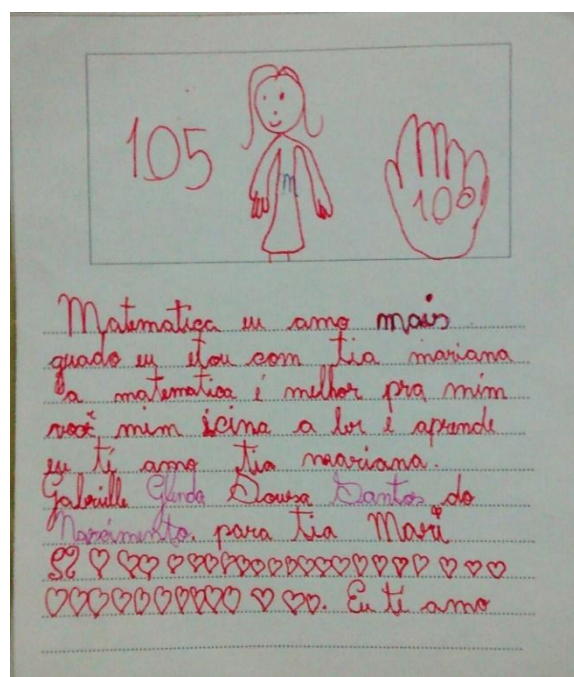 105
m
100
Matematica eu amo mais
quado eu etou com tia mariana
a matematica é melhor pra mim
você mim icina a ler é aprende
eu ti amo tia mariana.
Gabrielle Glenda Sousa Santos do
Nascimento. para tia Mari
Eu ti amo